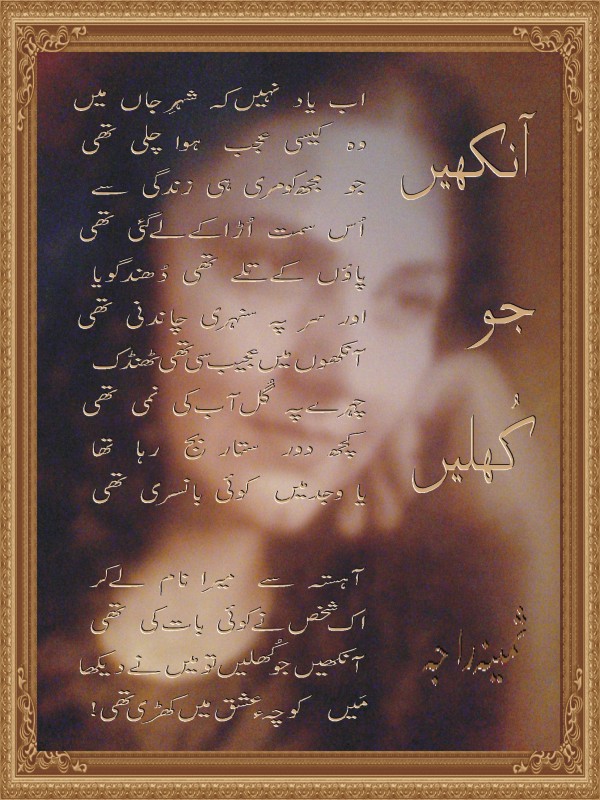 آنکھیں
جو
کُھلیں
اب یاد نہیں کہ شہرِ جاں میں
وہ کیسی عجیب ہوا چلی تھی
جو مجھ کو مری ہی زندگی سے
اُس سمت اُڑا کے لے گئی تھی
پاؤں کے تلے تھی دُھند گویا
اور سر پہ سنہری چاندنی تھی
آنکھوں میں عجیب سی تھی ٹھنڈک
چہرے پہ گُل آب کی نمی تھی
کچھ دور ستار بج رہا تھا
یا وجد میں کوئی بانسری تھی
آہستہ سے میرا نام لے کر
اک شخص نے کوئی بات کی تھی
آنکھیں جو کُھلیں تو میں نے دیکھا
مَیں کوچہءِ عشق میں کھڑی تھی!
ثمینہ راجہ